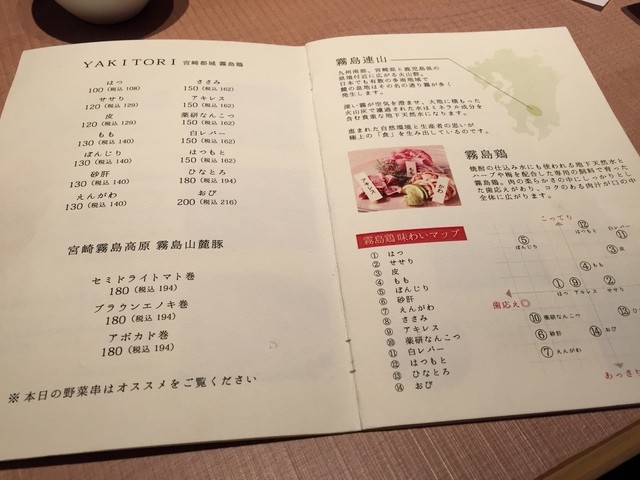 YAKITORI 宮崎都城 霧島鶏
はつ
100 (税込 108)
せせり
120 (税込 129)
皮
120 (税込 129)
もも
130 (税込 140)
ぼんじり
130 (税込 140)
砂肝
130 (税込 140)
えんがわ
130 (税込 140)
ささみ
150 (税込 162)
アキレス
150 (税込 162)
薬研なんこつ
150 (税込 162)
白レバー
150 (税込 162)
はつもと
150 (税込 162)
ひなとろ
180 (税込 194)
おび
200 (税込 216)
宮崎霧島高原 霧島山麓豚
セミドライトマト巻
180 (税込 194)
ブラウンエノキ巻
180 (税込 194)
アボカド巻
180 (税込 194)
※本日の野菜串はオススメをご覧ください
霧島連山
九州南部、宮崎県と鹿児島県の
県境付近に広がる火山群。
日本でも有数の多雨地域で
麓の盆地はその名の通り霧が多く
発生します。
深い霧が空気を澄ませ、大地に積もった
火山灰で濾過された水はミネラル成分を
含む貴重な地下天然水になります。
恵まれた自然環境と生産者の思いが
極上の「食」を生み出しているのです。
霧島鶏
焼酎の仕込み水にも使われる地下天然水と
ハーブや鴨を配合した専用の飼料で育った
霧島鶏。肉の柔らかさの中にしっかりとし
た歯応えがあり、コクのある肉汁が口の中
全体に広がります。
かわ
霧島鶏 味わいマップ
① はつ
② せせり
③ 皮
④ もも
⑤ ぼんじり
⑥ 砂肝
⑦ えんがわ
⑧ ささみ
⑨ アキレス
⑩ 薬研なんこつ
⑪ 白レバー
⑫ はつもと
⑬ ひなとろ
⑭ おび
こってり
⑫
はつもと
⑪
白レバー
⑤
ぼんじり
③
皮
④ もも
①
はつ
⑨
アキレス
②
せせり
歯応え◎
⑩ 薬研なんこつ
⑬ ひなとろ
⑥ 砂肝
⑭ おび
⑦ えんがわ